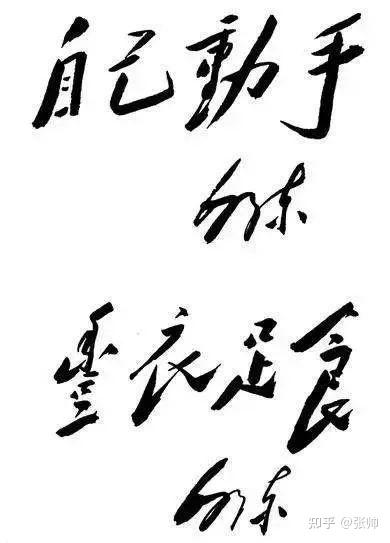 自己動手
泽东
豐衣足食
泽东
知乎 @张帅